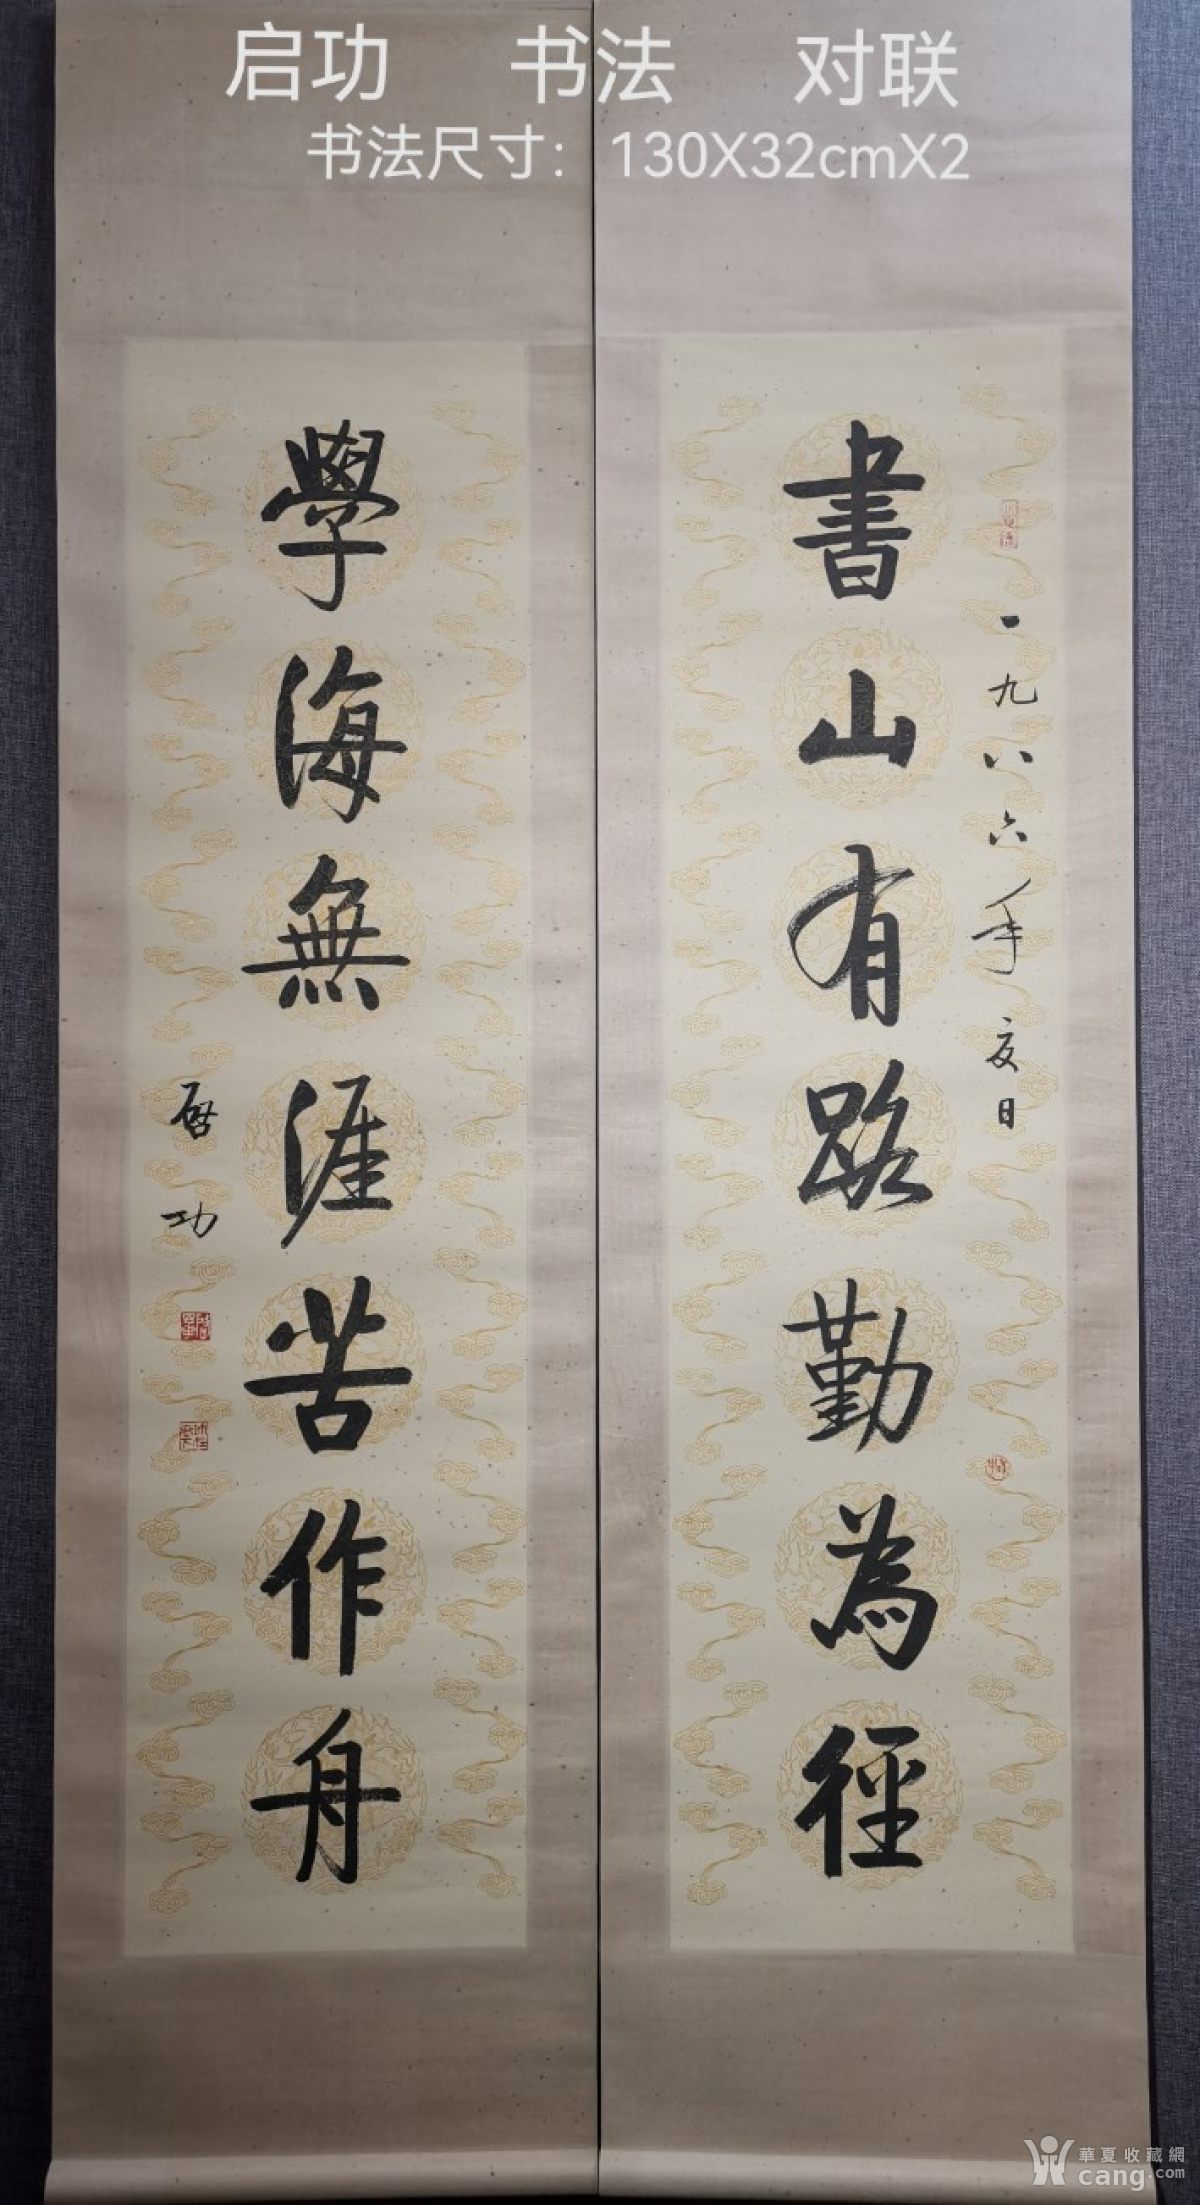 启功 书法 对联
书法尺寸：130X32cmX2
書山有路勤為徑
一九八六年夏日
學海無涯苦作舟
啓功
華夏收藏網
cang.com